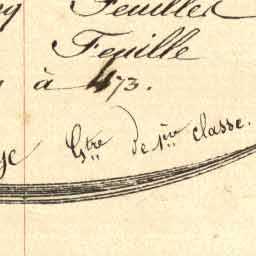 Feuillet
Feuille
à 473.
Gtre de 1ère classe.